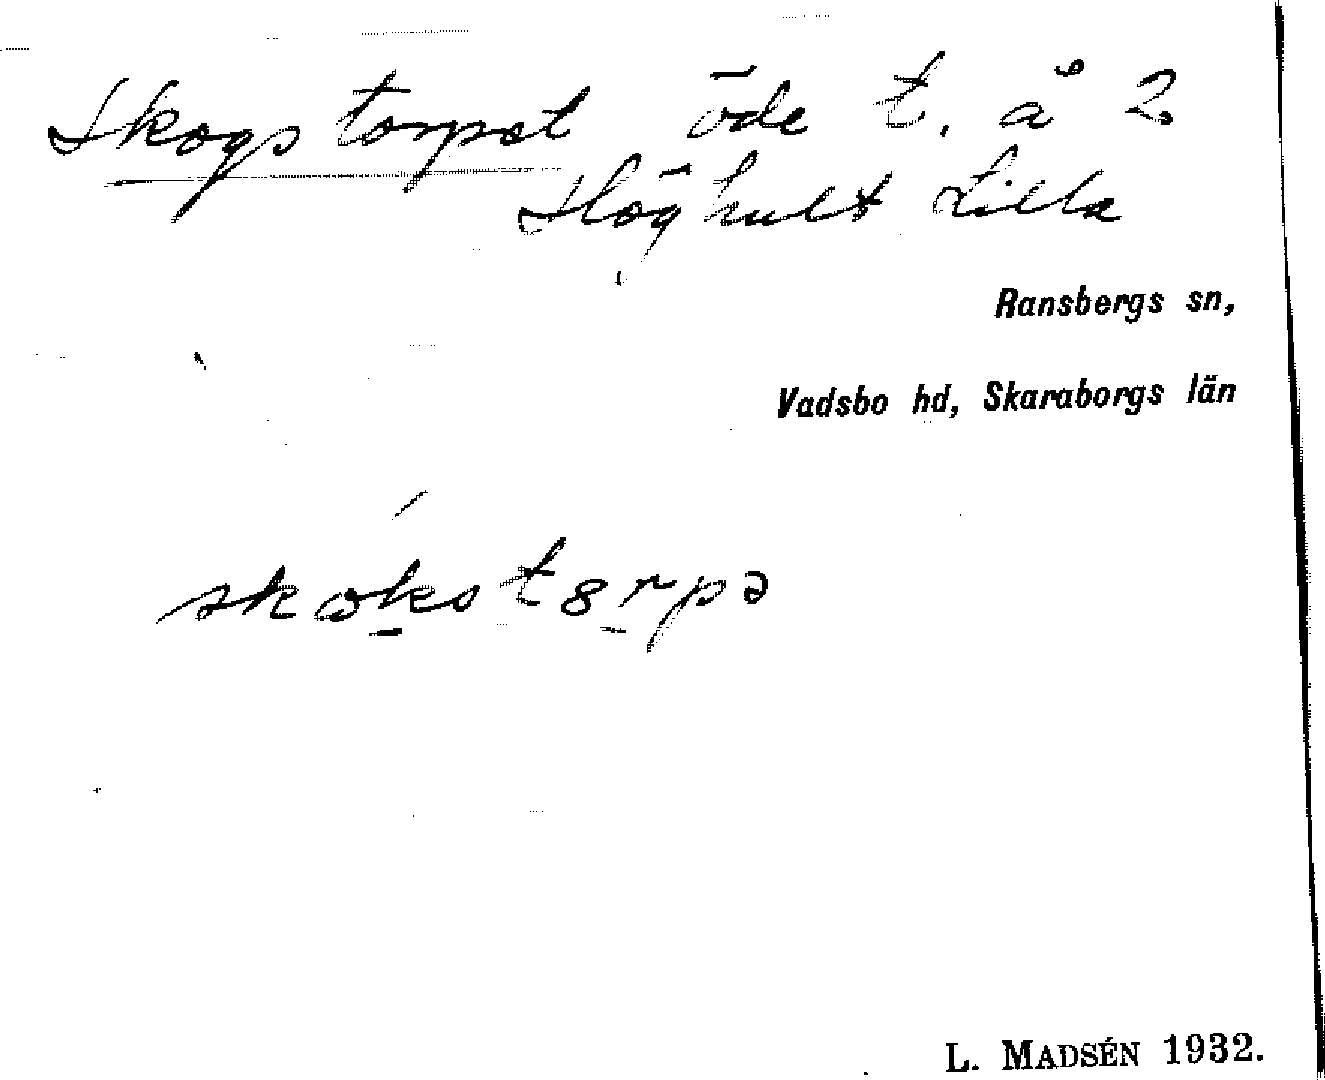 Skogstorpet öde t. å 2
Slöghult Lilla
Ransbergs sn,
Vadsbo hd, Skaraborgs län
skókstȣrpə
L. MADSÉN 1932.